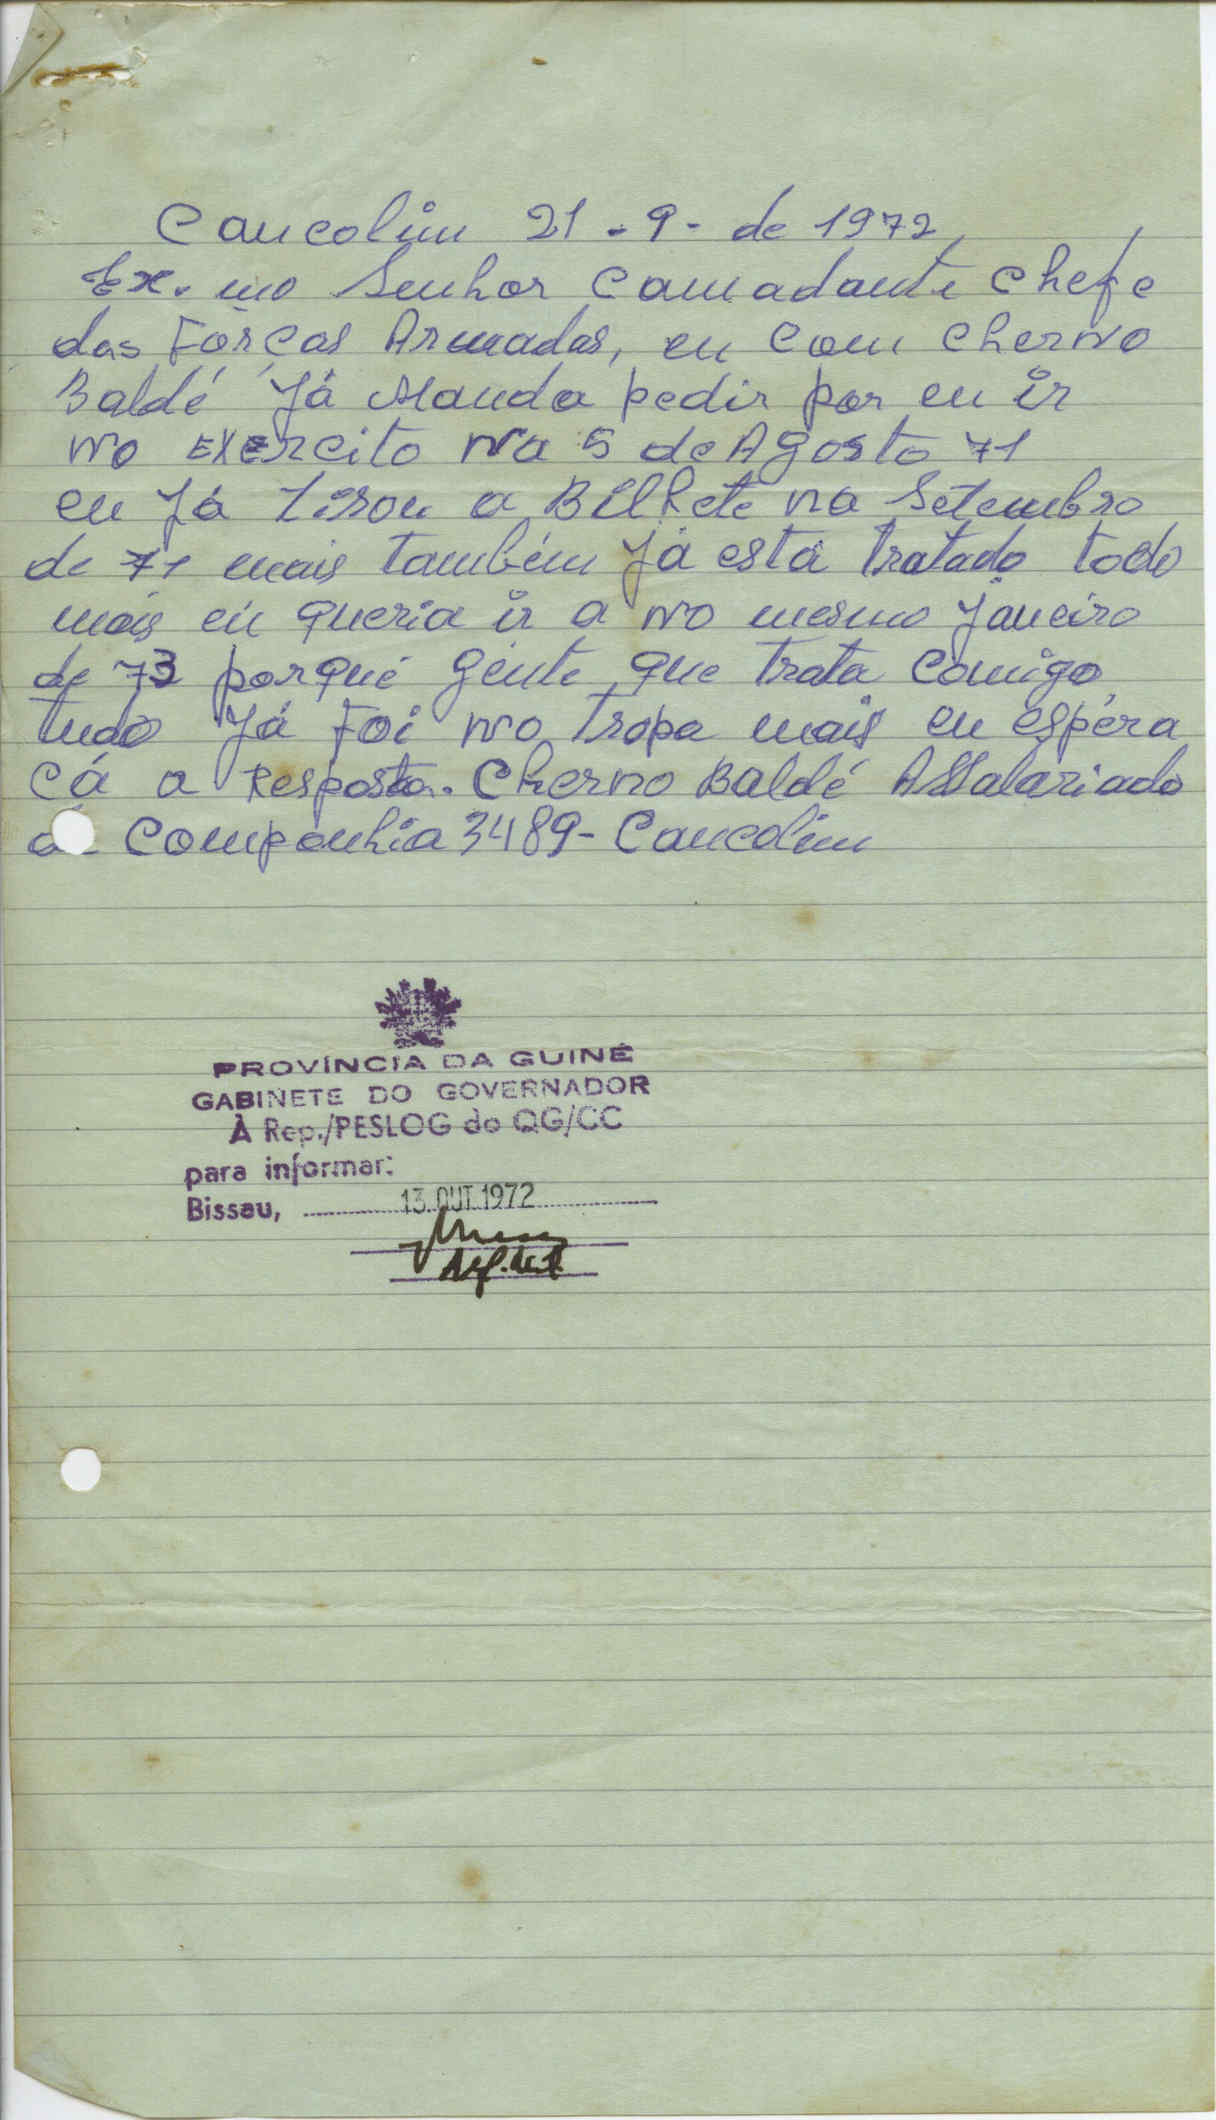 Cancolim 21 - 9 - de 1972
Ex. mo Senhor Camadante Chefe
das Fôrças Armadas, eu com cherno
Baldé Já Manda pedir por eu ir
no EXERcito na 5 de Agosto 71
eu Já Tirou a Bilhete na Setembro
de 71 mais também Já está tratado todo
mais eu queria ir a no mesmo Janeiro
de 73 porqué gente que trata comigo
tudo Já Foi no tropa mais eu espéra
cá a Resposta. Cherno Baldé ASSalariado
Companhia 3489 - Cancolim
PROVÍNCIA DA GUINÉ
GABINETE DO GOVERNADOR
À Rep./PESLOG do QG/CC
para informar:
Bissau, 13. OUT. 1972